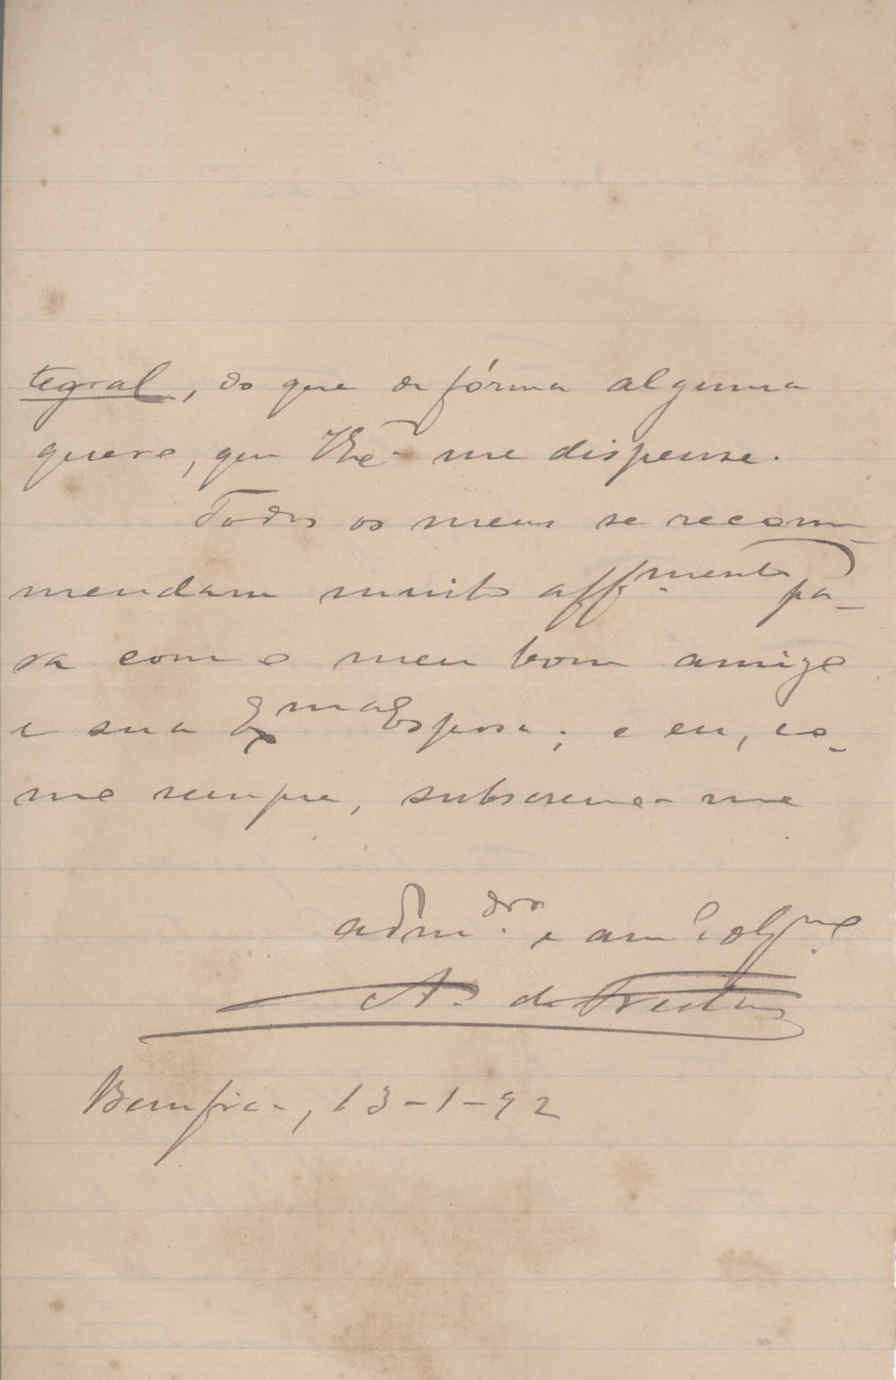 tegral, do que de fórma alguma
quero, que VExª me dispense.
Todos os meus se recom
mendam muito aff.mente pa-
ra com o meu bom amigo
e sua Exma Esposa; e eu, co-
mo sempre, subscrevo-me
adm.dor e am.º obgmo
As. de Freitas
Bemfica, 13-1-92